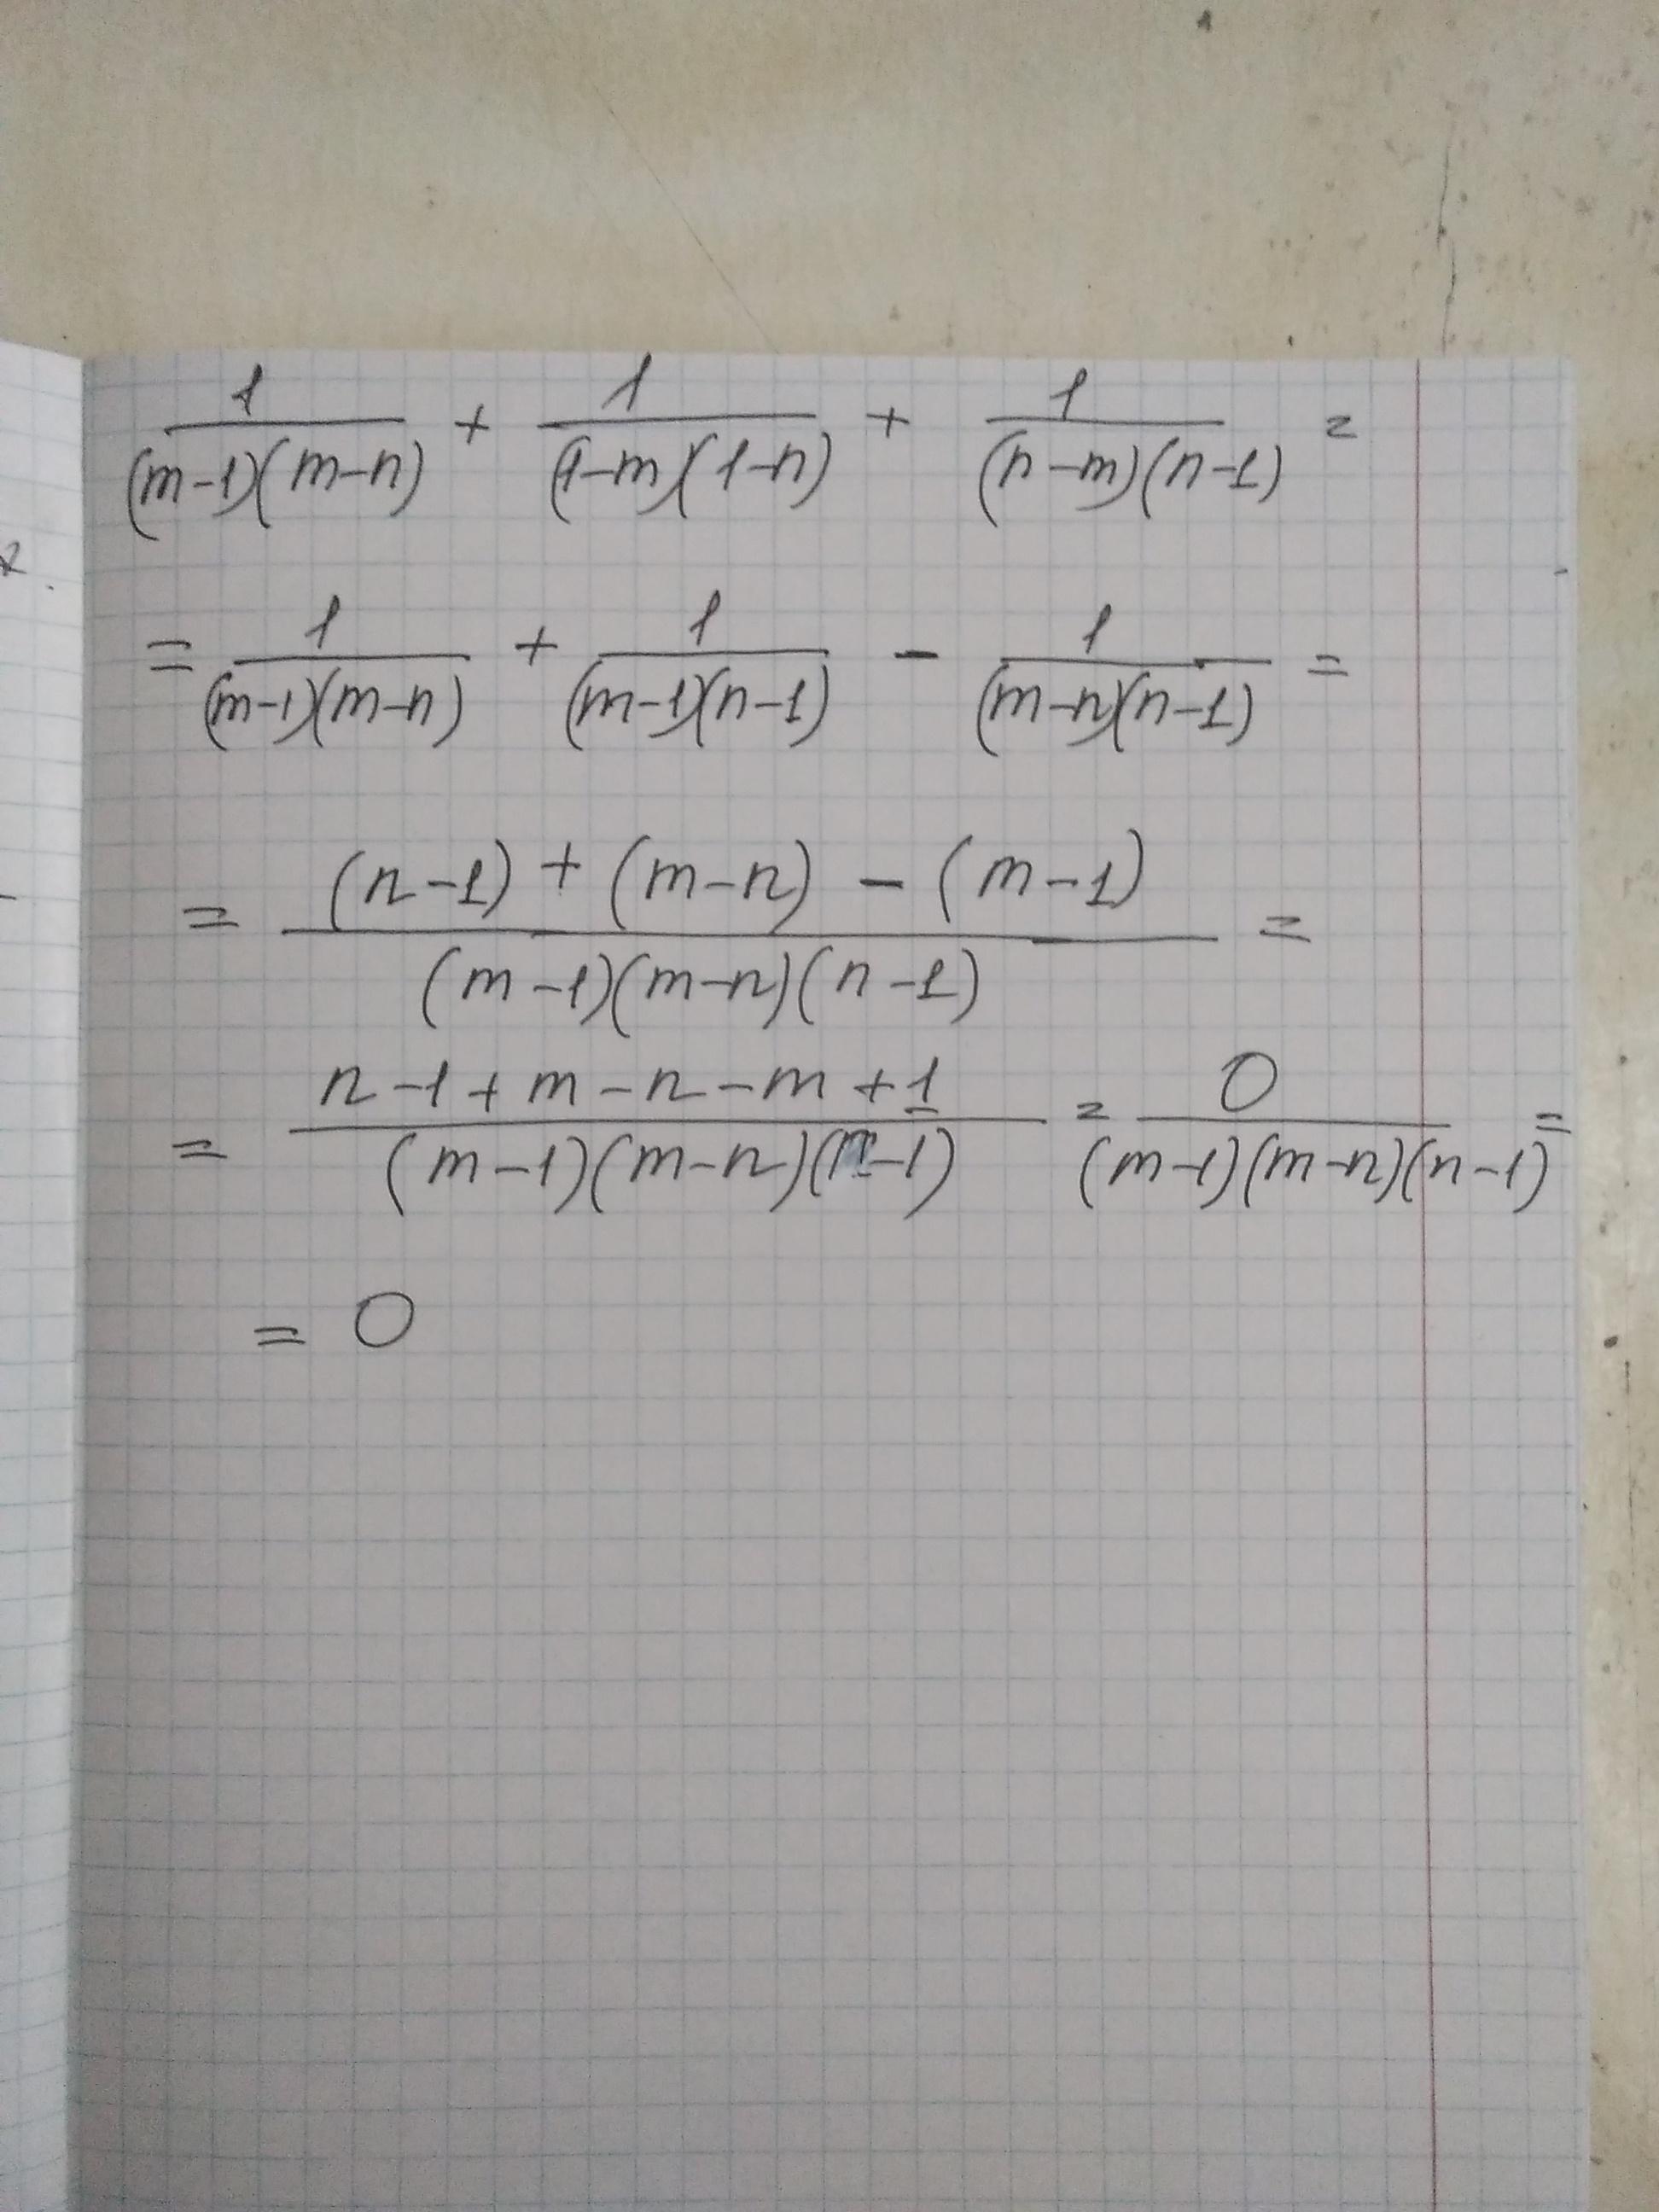 1/((m-1)(m-n)) + 1/((1-m)(1-n)) + 1/((n-m)(n-1)) =
= 1/((m-1)(m-n)) + 1/((m-1)(n-1)) - 1/((m-n)(n-1)) =
= ((n-1)+(m-n)-(m-1))/((m-1)(m-n)(n-1)) =
= (n-1+m-n-m+1)/((m-1)(m-n)(n-1)) = 0/((m-1)(m-n)(n-1)) =
= 0